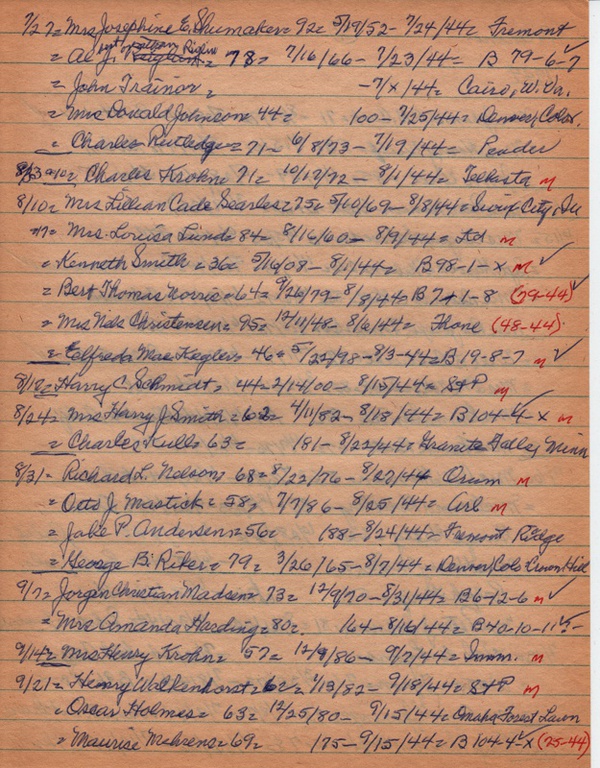 7/27= Mrs Josephine E. Shumaker= 92= 5/19/52- 7/24/44= Fremont
= Al J. 78= 7/16/66- 7/23/44= B 79-6-7
= John Trainor= -7/x/44= Cairo, W.Va.
= Mrs Donald Johnson= 44= 100- 7/25/44= Denver, Color.
= Charles Rutledge= 71- 6/8/73- 7/19/44= Pender
Charles Krohn= 71= 10/17/72- 8/1/44= Tellusta M
8/10= Mrs Lillian Cade Searles= 75= 5/10/69- 8/8/44= Sioux City, Ia
Mrs. Louisa Lund= 84= 8/16/60- 8/9/44= M
= Kenneth Smith= 36= 5/16/08- 8/1/44= B98-1-x M
= Bert Thomas Norris= 64= 9/26/79- 8/8/44= B7+1-8 (79-44)
= Mrs Nels Christensen= 95= 12/11/48- 8/6/44= (48-44)
= Elfreda Mae Kegler= 46= 5/22/98- 8/3-44= B 19-8-7 M
8/17= Harry C. Schmidt= 44= 2/14/00- 8/15/44= St P M
8/24= Mrs Harry J. Smith= 62= 4/11/82- 8/18/44= B104-4-x M
= Charles Kull= 63= 181- 8/22/44= Granite Falls, Minn
8/31= Richard L. Nelson= 68= 8/22/76- 8/27/44 Orum M
= Otto J. Mastick= 58= 7/7/86- 8/25/44= Arl M
= Jake P. Andersen= 56= 188- 8/24/44= Fremont Ridge
= George B. Riker= 79= 3/26/65- 8/7/44= Denver, Colo Crown Hill
9/7= Jorgen Christian Madsen= 73= 12/9/70- 8/31/44= B6-12-6 M
= Mrs Amanda Harding= 80= 164- 8/16/44= B40-10-11
9/14= Mrs Henry Krohn= 57= 12/9/86- 9/7/44= Imm. M
9/21= Henry Walkenhorst= 62= 1/13/82- 9/18/44= St P M
= Oscar Holmes= 63= 12/25/80- 9/15/44= Omaha Forest Lawn
= Maurise Mehrens= 69= 175- 9/15/44= B 104-4-x (75-44)